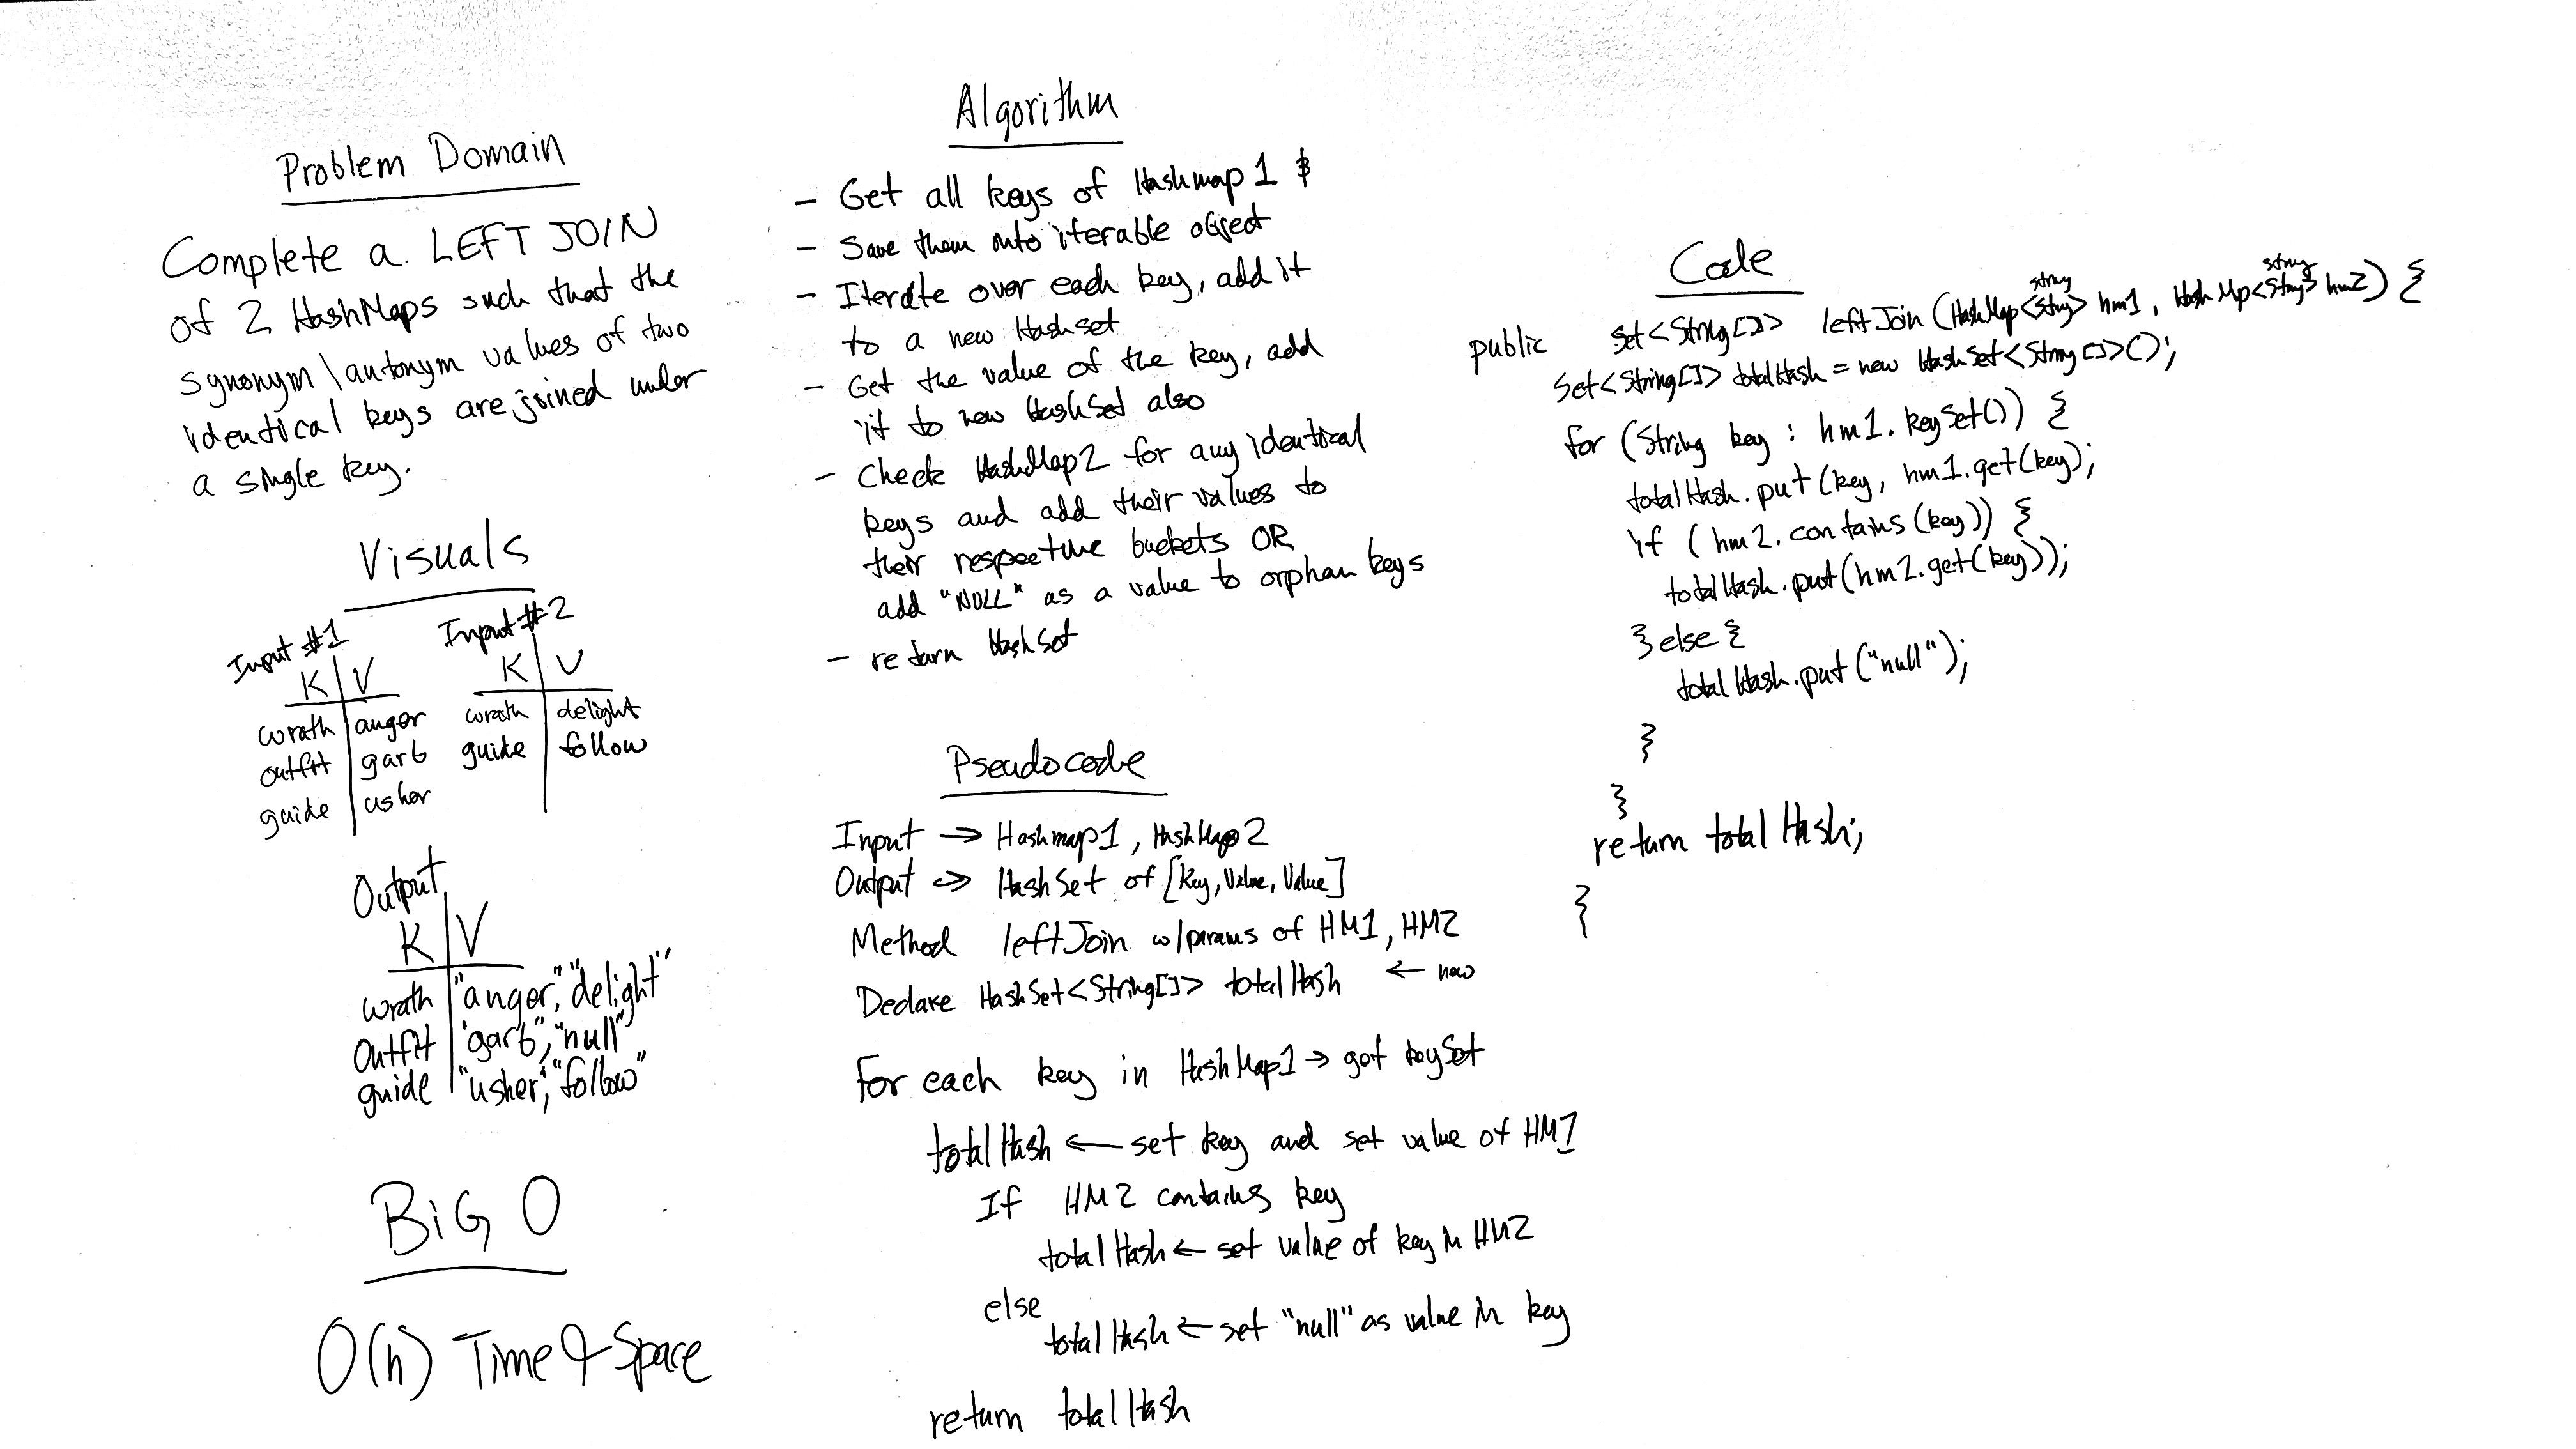 Problem Domain
Complete a LEFT JOIN
of 2 HashMaps such that the
synonym\antonym values of two
identical keys are joined under
a single key.
Visuals
Input #1
K V
wrath anger
outfit garb
guide usher
Input #2
K V
wrath delight
guide follow
Output
K V
wrath "anger", "delight"
outfit "garb", "null"
guide "usher", "follow"
BiG O
O(n) Time & Space
Algorithm
- Get all keys of Hashmap 1 &
- Save them into iterable object
- Iterate over each key, add it
to a new Hashset
- Get the value of the key, add
it to new HashSet also
- Check HashMap2 for any identical
keys and add their values to
their respective buckets OR
add "NULL" as a value to orphan keys
- return HashSet
Pseudocode
Input → Hashmap1, HashMap2
Output => HashSet of [Key, Value, Value]
Method leftJoin w/params of HM1, HM2
Declare HashSet<String[]> totalHash ← new
For each key in HashMap1 → get keySet
totalHash ← set key and set value of HM1
If HM2 contains key
totalHash ← set value of key in HM2
else
totalHash ← set "null" as value in key
return totalHash
Code
public Set<String[]> leftJoin (HashMap<String string> hm1, HashMp<String string> hm2) {
Set<String[]> totalHash = new HashSet<String[]>();
for (String key : hm1.keySet()) {
totalHash.put(key, hm1.get(key);
if (hm2.contains(key)) {
totalHash.put(hm2.get(key));
} else {
totalHash.put("null");
}
}
return totalHash;
}